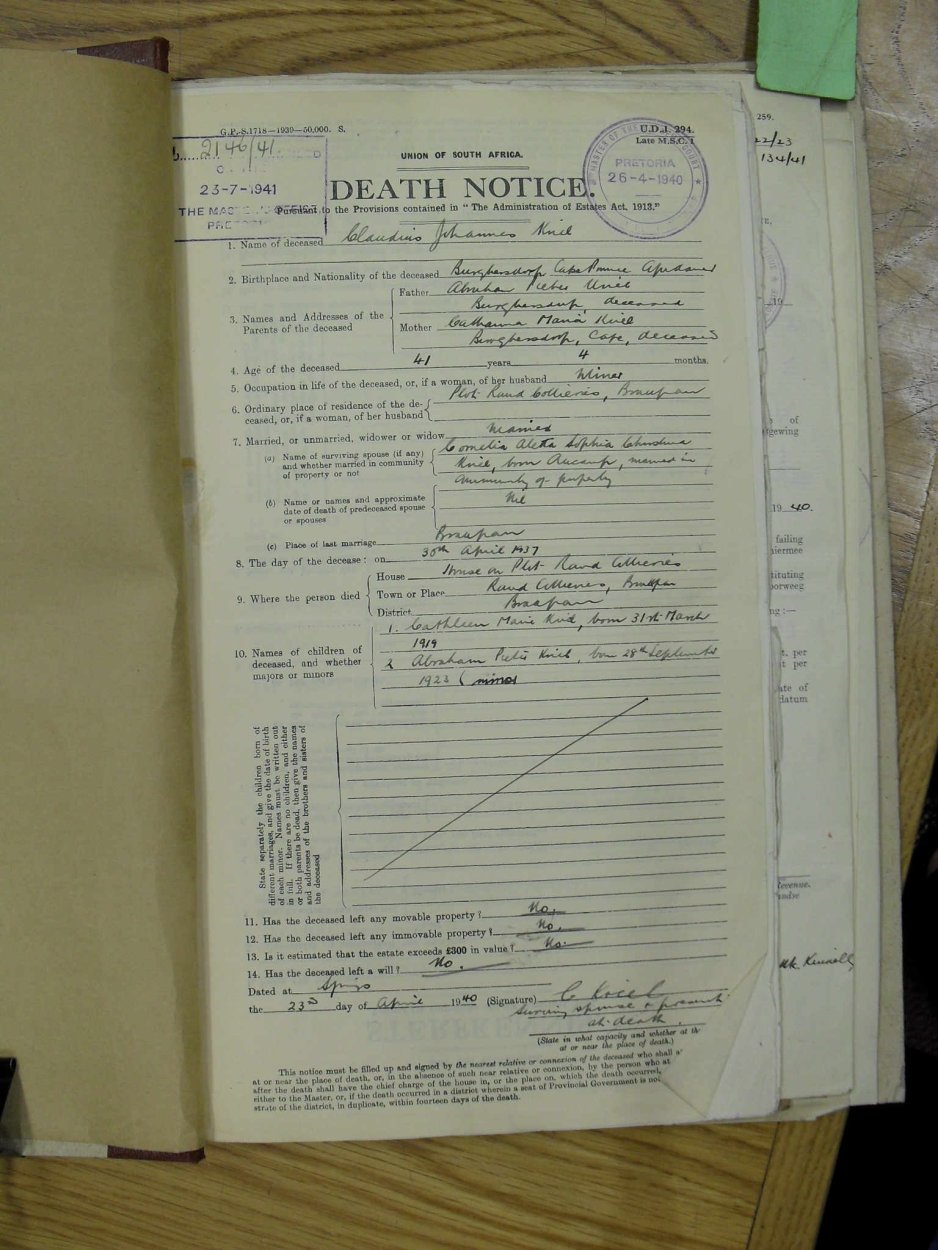 G.P.-S.1718—1939—50,000. S.
U.D.J. 294.
Late M.S.C. 1
2146/41.
23-7-1941
THE MASTER'S OFFICE
PRETORIA
MASTER OF THE SUPREME COURT
PRETORIA
26-4-1940
UNION OF SOUTH AFRICA.
DEATH NOTICE.
Pursuant to the Provisions contained in "The Administration of Estates Act, 1913."
1. Name of deceased Claudius Johannes Kriel
2. Birthplace and Nationality of the deceased Burghersdorp Cape Province
3. Names and Addresses of the Parents of the deceased
Father Abraham Pieter Kriel
Burghersdorp, deceased
Mother Catharina Maria Kriel
Burghersdorp, Cape, deceased
4. Age of the deceased 41 years 4 months.
5. Occupation in life of the deceased, or, if a woman, of her husband Miner
6. Ordinary place of residence of the de-
ceased, or, if a woman, of her husband
Plot Rand Collieries, Brakpan
7. Married, or unmarried, widower or widow Married
(a) Name of surviving spouse (if any)
and whether married in community
of property or not
Cornelia Aletta Sophia Christina
Kriel, born Aucamp, married in
community of property
(b) Name or names and approximate
date of death of predeceased spouse
or spouses
Nil
(c) Place of last marriage Brakpan
8. The day of the decease: on 30th April 1937
9. Where the person died
House House on Plot Rand Collieries
Town or Place Rand Collieries, Brakpan
District Brakpan
10. Names of children of
deceased, and whether
majors or minors
1. Cathleen Maria Kriel, born 31st March
1919
2 Abraham Pieter Kriel, born 28th September
1923 (minor
State separately the children born of
different marriages, and give the date of birth
of each minor. Names must be written out
in full. If there are no children, and either
or both parents be dead, then give the names
and addresses of the brothers and sisters of
the deceased
11. Has the deceased left any movable property? No.
12. Has the deceased left any immovable property? No.
13. Is it estimated that the estate exceeds £300 in value? No.
14. Has the deceased left a will? No.
Dated at Springs
the 23rd day of April 1940 (Signature) C Kriel
Surviving spouse & present
at death.
(State in what capacity and whether at th
at or near the place of death.)
This notice must be filled up and signed by the nearest relative or connexion of the deceased who shall a
at or near the place of death, or, in the absence of such near relative or connexion, by the person who at
after the death shall have the chief charge of the house in, or the place on, which the death occurred,
either to the Master, or, if the death occurred in a district wherein a seat of Provincial Government is not
strate of the district, in duplicate, within fourteen days of the death.
259.
22/23
134/41
19
of
gewing
19 40.
failing
iermee
tituting
oorweeg
ng:—
t. per
it per
ate of
datum
Revenue.